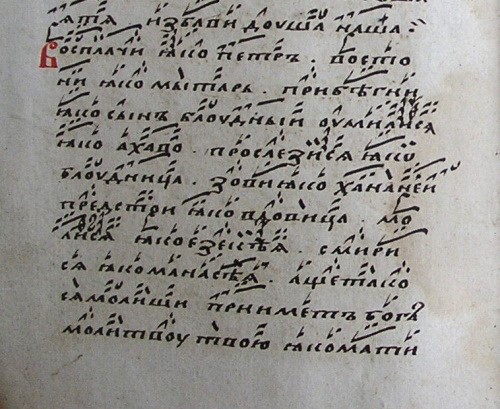 избави доуша наша:
Восплачи ꙗко петръ. восто
ни ꙗко мытарь. прибѣгни
ꙗко сынъ блоудный оумилисѧ
ꙗко ахаво. прослезисѧ ꙗко
блоудница. зови ꙗко хананеи
предстри ꙗко вдовица. мо
лисѧ ꙗко смири
сѧ ꙗко манасїѧ. аще тако
сѧ молиши прииметъ богъ
молитвоу твою ꙗко мати